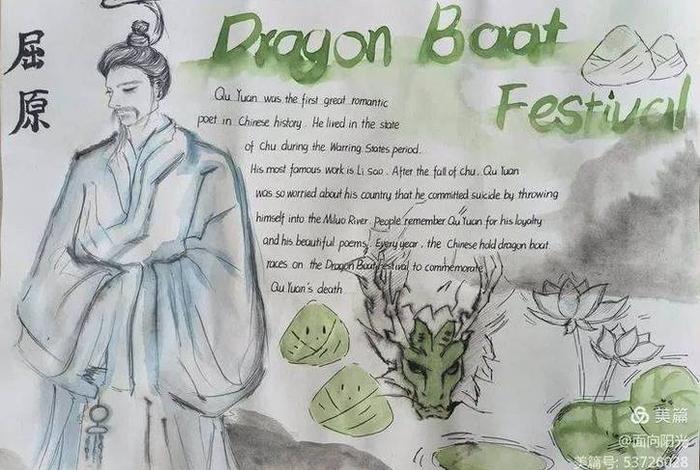 屈原
Dragon Boat
Festival
Qu Yuan was the first great romantic
poet in Chinese history. He lived in the state
of Chu during the Warring States period.
His most famous work is Li Sao. After the fall of chu. Qu Yuan
was so worried about his country that he committed suicide by throwing
himself into the Miluo River. people remember Qu Yuan for his loyalty
and his beautiful poems. Every year, the Chinese hold dragon boat
races on the Dragon Boat Festival to commemorate
Qu Yuan's death
美篇
@面向阳光
美篇号: 53726028